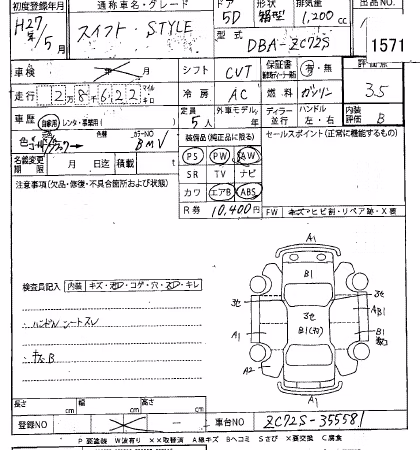 初度登録年月 通称車名・グレード ドア 形状 排気量 出品NO.
H27年/5月 スイフト・STYLE 5D 箱型 1,200 cc
型式 DBA-ZC72S 1571
車検 年 月 シフト CVT 保証書 有・無 評価点
走行 2万8千622 マイル キロ 冷房 AC 燃料 ガソリン 3.5
車歴 自家用 レンタ・事業用 定員 5人 外車モデル/年 ディーラー 並行 ハンドル 左・右 内装評価 B
色 色替 カラーNO BMV 装備品(純正品に限る) セールスポイント(正常に機能するもの)
名義変更期限 月 日迄 積載 t PS PW AW
注意事項(欠品・修復・不具合箇所および状態) SR TV ナビ
カワ エアB ABS
R券 10,400円 FW キズ・ヒビ割・リペア跡・X要
A1
検査員記入 内装 キズ・汚レ・コゲ・穴・スレ・キレ
B1
3セ 3セ
・ハンドル シートスレ
3セ AB1
A1 B1(カ) B1
・キズB
A2
A1
長さ cm 幅 cm 高さ cm
登録NO 車台NO ZC72S-355581
P 要塗装 W波有り XX取替済 A線キズ Bヘコミ Sさび X要交換 C腐食